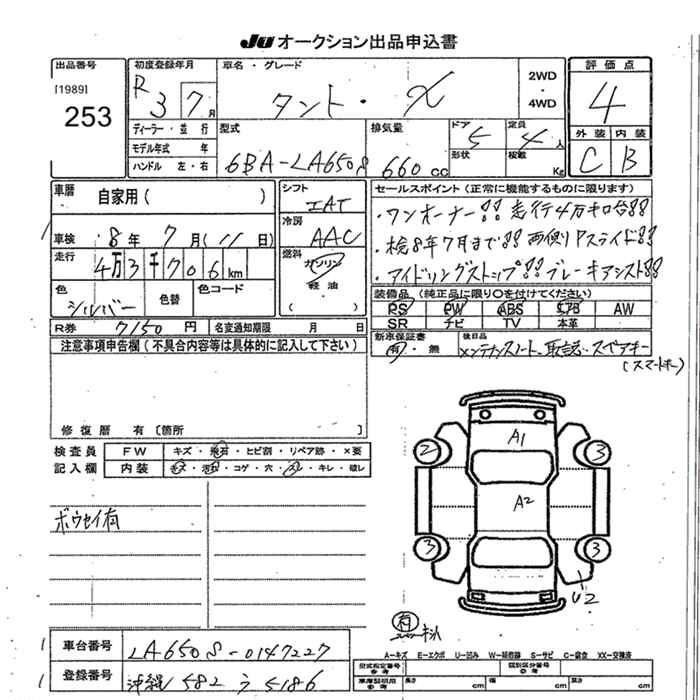 JU オークション出品申込書
出品番号 初度登録年月 車名・グレード 2WD ・ 4WD 評価点
[1989] 253 R3 7月 タント・X 4
ディーラー・並行 型式 排気量 ドア 5 定員 4人 外装 内装
モデル年式 年 6BA-LA650S 660cc 形状 積載 Kg C B
ハンドル 左・右
車歴 自家用( ) シフト IAT セールスポイント(正常に機能するものに限ります)
車検 8年 7月(11日) 冷房 AAC ・ワンオーナー!! 走行4万キロ台!!
走行 4万3千706km 燃料 ガソリン ・検8年7月まで!! 両側Pスライド!!
色 シルバー 色替 色コード 軽油 ( ) ・アイドリングストップ!! ブレーキアシスト!!
装備品(純正品に限り○を付けてください)
PS PW ABS エアB AW
SR ナビ TV 本革
R券 7150円 名変通知期限 月 日 新車保証書 有・無 後日品 メンテナンスノート、取説、スペアキー
(スマートキー)
注意事項申告欄(不具合内容等は具体的に記入して下さい)
修復歴 有〔箇所 〕
検査員 FW キズ・飛石・ヒビ割・リペア跡・×要
記入欄 内装 キズ・汚れ・コゲ・穴・スレ・キレ・破レ
ボウセイ有
A1
2 3
A2
3 3
U2
車台番号 LA650S-0147227
登録番号 沖縄 582 う 5186
A-キズ E-エクボ U-凹み W-補修跡 S-サビ C-腐食 XX-交換済
型式指定番号 参考 類別区分番号
車庫証明用 参考 長さ cm 幅 cm 高さ cm